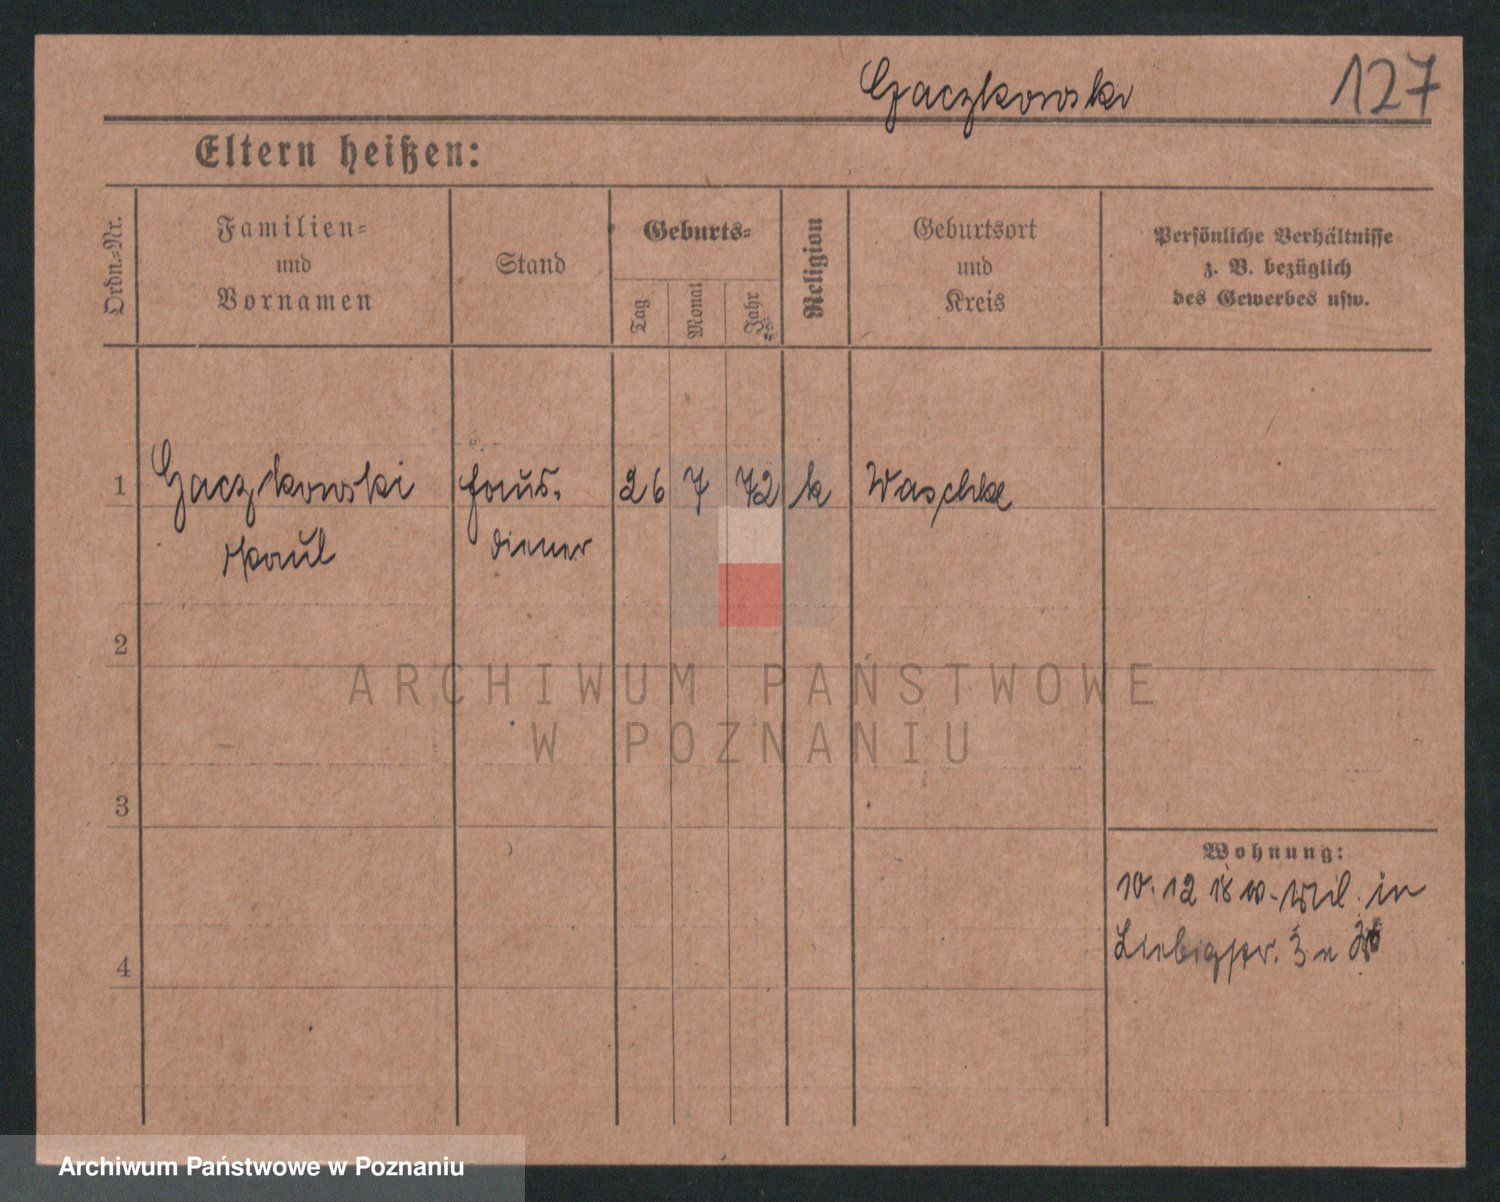 Gaczkowski 127
Eltern heißen:
Ordn.-Nr.
Familien-
und
Vornamen
Stand
Geburts-
Tag
Monat
Jahr
Religion
Geburtsort
und
Kreis
Persönliche Verhältnisse
z. B. bezüglich
des Gewerbes usw.
1 Gaczkowski Haus- 26 7 72 k Waschke
Paul diener
2
ARCHIWUM PAŃSTWOWE
W POZNANIU
3
Wohnung:
10. 12 18 in
Liebigstr. 3
4
Archiwum Państwowe w Poznaniu